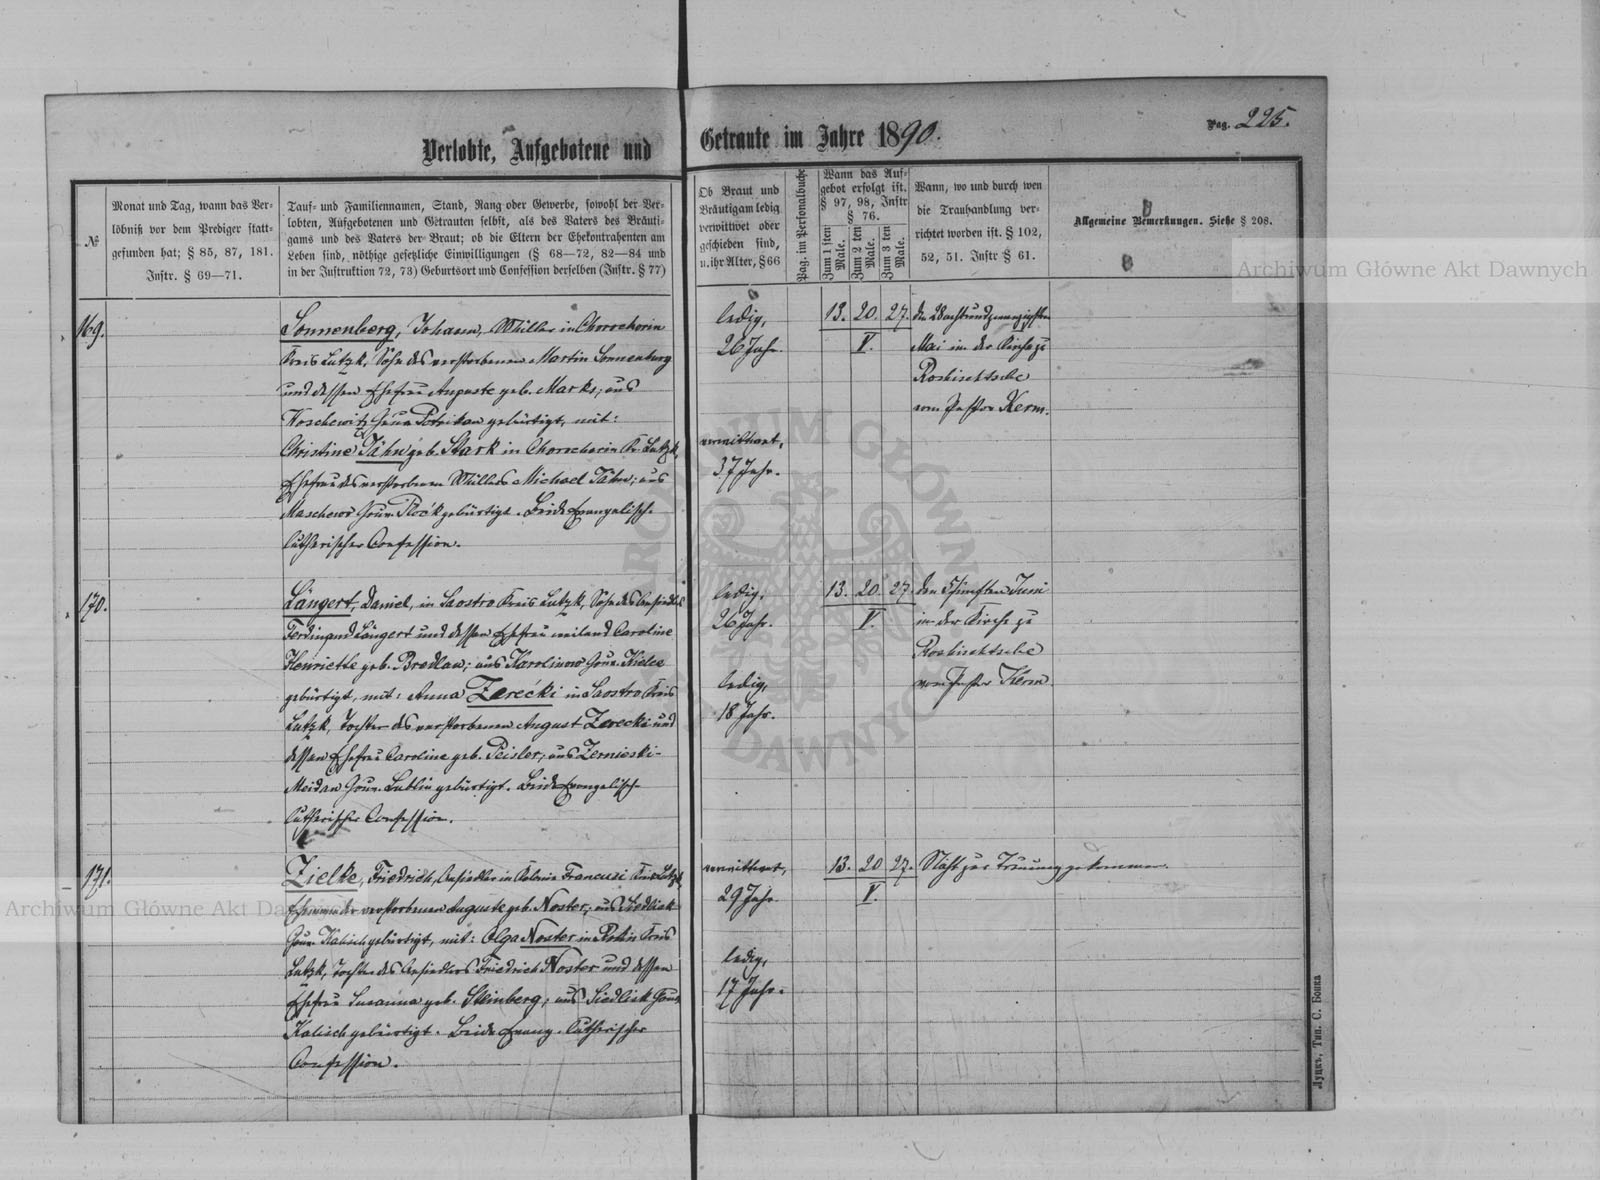 Pag. 225.
Verlobte, Aufgebotene und Getraute im Jahre 1890.
№
Monat und Tag, wann das Ver-
löbniß vor dem Prediger statt-
gefunden hat; § 85, 87, 181.
Instr. § 69—71.
Tauf- und Familiennamen, Stand, Rang oder Gewerbe, sowohl der Ver-
lobten, Aufgebotenen und Getrauten selbst, als des Vaters des Bräuti-
gams und des Vaters der Braut; ob die Eltern der Ehekontrahenten am
Leben sind, nöthige gesetzliche Einwilligungen (§ 68—72, 82—84 und
in der Instruktion 72, 73) Geburtsort und Confession derselben (Instr. § 77)
Ob Braut und
Bräutigam ledig
verwittwet oder
geschieden sind,
u. ihr Alter, § 66
Pag. im Personalbuche
Wann das Auf-
gebot erfolgt ist.
§ 97, 98, Instr
§ 76.
Zum 1 sten Male.
Zum 2 ten Male.
Zum 3 ten Male.
Wann, wo und durch wen
die Trauhandlung ver-
richtet worden ist. § 102,
52, 51. Instr § 61.
Allgemeine Bemerkungen. Siehe § 208.
169.
Sonnenberg, Johann, Müller in Chorochorin
Kreis Lutzk, Sohn des verstorbenen Martin Sonnenburg
und dessen Ehefrau Auguste geb. Marks; aus
Woschewitz Gouv. Petrikau gebürtigt, mit:
Christine Jähn geb. Stark in Chorochorin Kr. Lutzk,
Ehefrau des verstorbenen Müllers Michael Jähn; aus
Maschewo Gouv. Plock gebürtigt. Beide Evangelisch-
lutherischer Confession.
ledig,
26 Jahr.
verwittwet,
37 Jahr.
13. 20. 27.
V.
den Achtundzwanzigsten
Mai in der Kirche zu
Roshischtsche
vom Pastor Kerm.
170.
Längert, Daniel, in Saostro Kreis Lutzk, Sohn des Ansiedlers
Ferdinand Längert und dessen Ehefrau weiland Caroline
Henriette geb. Bredlau; aus Karolinow Gouv. Kielce
gebürtigt, mit: Anna Zerecki in Saostro Kreis
Lutzk, Tochter des verstorbenen August Zerecki und
dessen Ehefrau Caroline geb. Peisler; aus Zernieski-
Meidan Gouv. Lublin gebürtigt. Beide Evangelisch-
lutherischer Confession.
ledig,
26 Jahr.
ledig,
18 Jahr.
13. 20. 27.
V.
den Fünften Juni
in der Kirche zu
Roshischtsche
vom Pastor Kerm
171.
Zielke, Friedrich, Ansiedler in Kolonie Francusi Kreis Lutzk,
Ehemann der verstorbenen Auguste geb. Noster; aus Siedlisk
Gouv. Kalisch gebürtigt, mit: Olga Noster in Kreis
Lutzk, Tochter des Ansiedlers Friedrich Noster und dessen
Ehefrau Susanna geb. Steinberg; aus Siedlisk Gouv.
Kalisch gebürtigt. Beide Evang. Lutherischer
Confession.
verwittwet,
29 Jahr.
ledig,
17 Jahr.
13. 20 27.
V.
Nicht zur Trauung gekommen.
Луцкъ, Тип. С. Бонка
Archiwum Główne Akt Dawnych
Archiwum Główne Akt Dawnych
ARCHIWUM GŁÓWNE AKT DAWNYCH